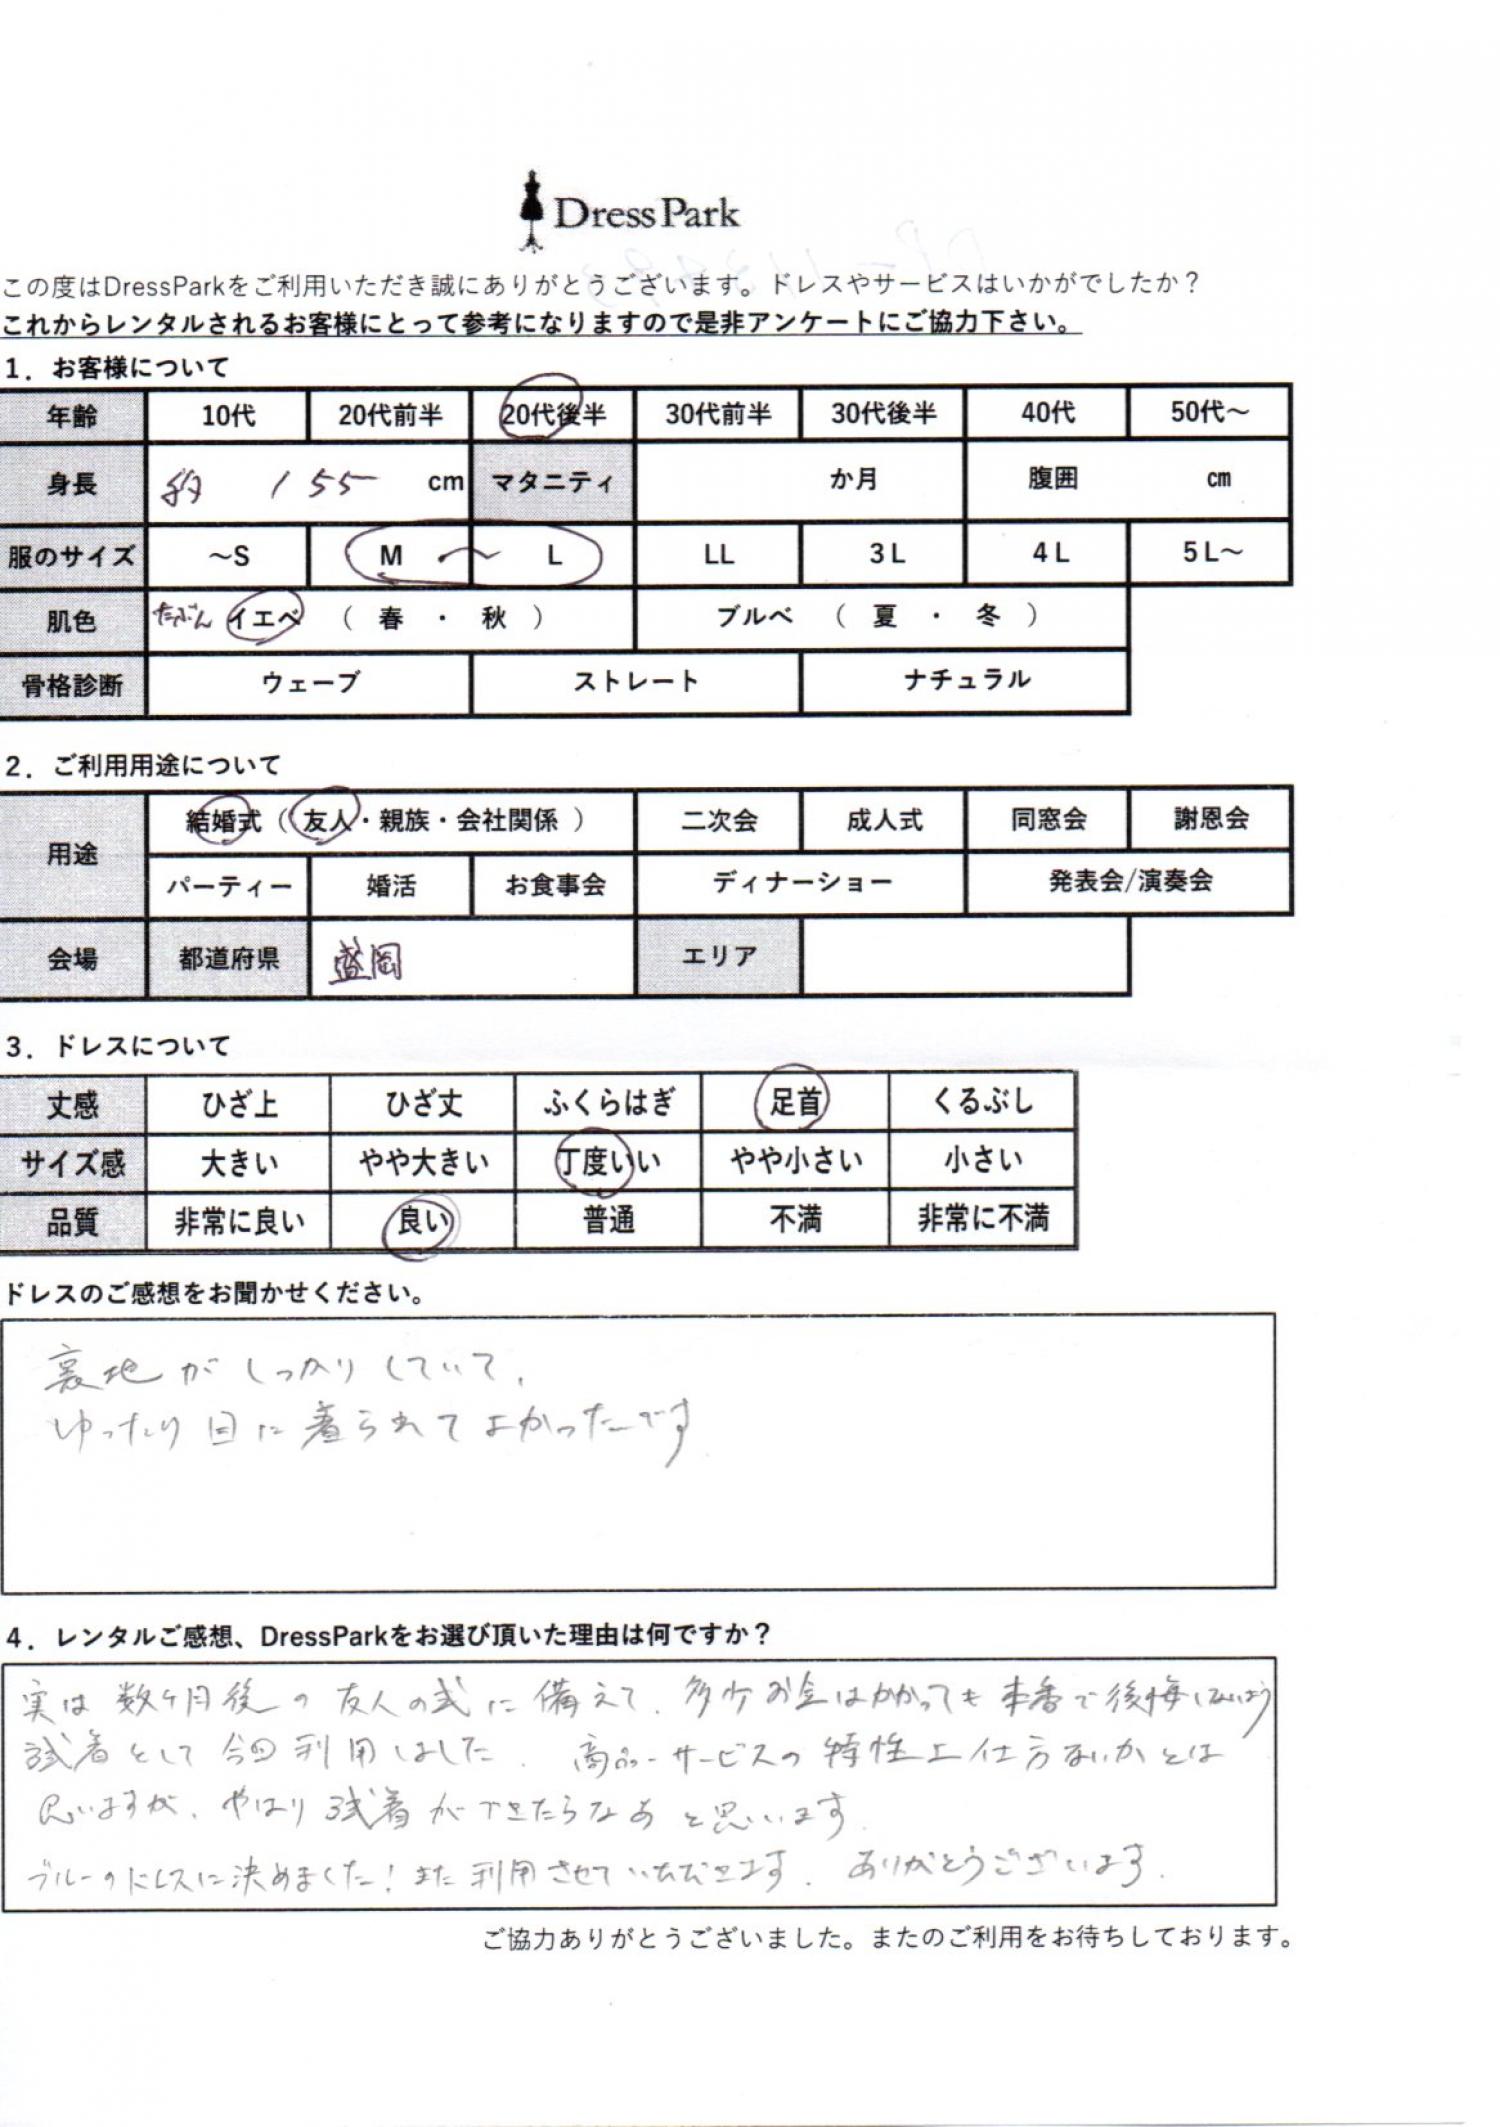 DressPark
この度はDressParkをご利用いただき誠にありがとうございます。ドレスやサービスはいかがでしたか？
これからレンタルされるお客様にとって参考になりますので是非アンケートにご協力下さい。
1．お客様について
年齢 10代 20代前半 20代後半 30代前半 30代後半 40代 50代～
身長 約 155 cm マタニティ か月 腹囲 ㎝
服のサイズ ～S M ～ L LL 3L 4L 5L～
肌色 たぶん イエベ （ 春 ・ 秋 ） ブルベ （ 夏 ・ 冬 ）
骨格診断 ウェーブ ストレート ナチュラル
2．ご利用用途について
用途 結婚式（ 友人・親族・会社関係 ） 二次会 成人式 同窓会 謝恩会
パーティー 婚活 お食事会 ディナーショー 発表会/演奏会
会場 都道府県 盛岡 エリア
3．ドレスについて
丈感 ひざ上 ひざ丈 ふくらはぎ 足首 くるぶし
サイズ感 大きい やや大きい 丁度いい やや小さい 小さい
品質 非常に良い 良い 普通 不満 非常に不満
ドレスのご感想をお聞かせください。
裏地がしっかりしていて、
ゆったり目に着られてよかったです
4．レンタルご感想、DressParkをお選び頂いた理由は何ですか？
実は数ヶ月後の友人の式に備えて、多少お金はかかっても本番で後悔しないよう
試着として今回利用しました。商品・サービスの特性上仕方ないかとは
思いますが、やはり試着ができたらなあと思います。
ブルーのドレスに決めました！また利用させていただきます。ありがとうございます。
ご協力ありがとうございました。またのご利用をお待ちしております。